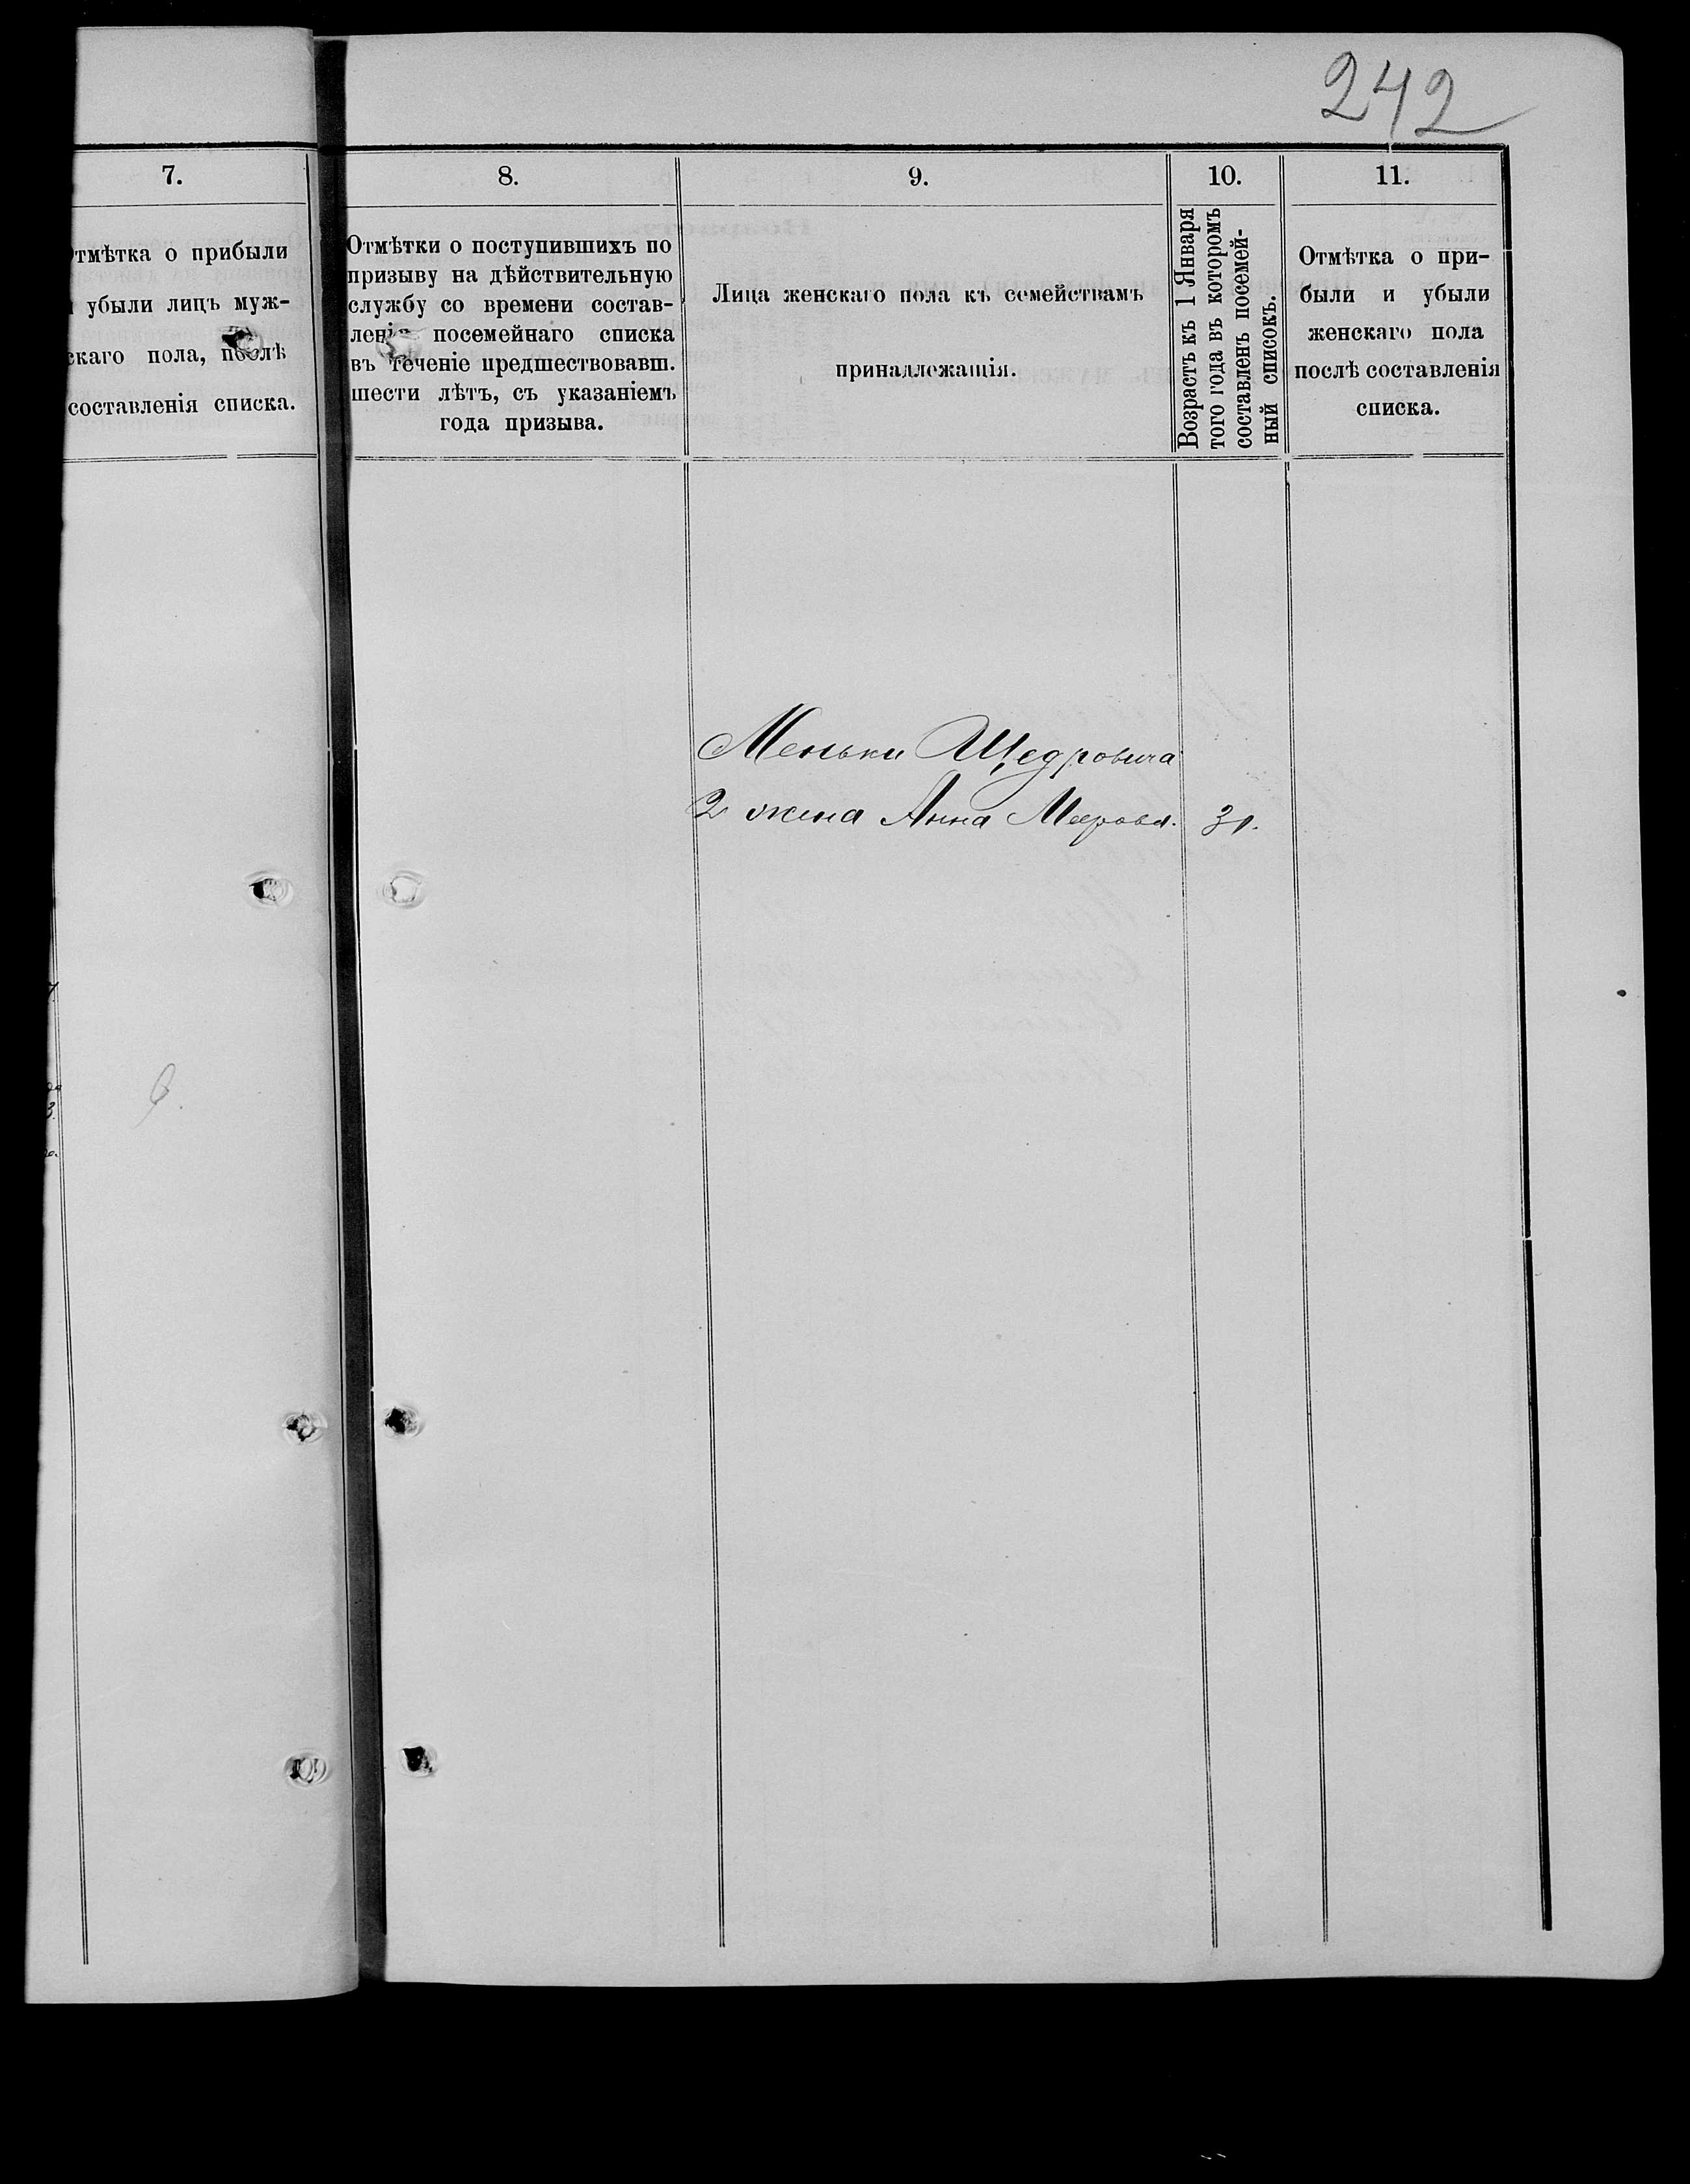 242
7.
Отмѣтка о прибыли
и убыли лицъ муж-
скаго пола, послѣ
составленія списка.
8.
Отмѣтки о поступившихъ по
призыву на дѣйствительную
службу со времени состав-
ленія посемейнаго списка
въ теченіе предшествовавш.
шести лѣтъ, съ указаніемъ
года призыва.
9.
Лица женскаго пола къ семействамъ
принадлежащія.
10.
Возрастъ къ 1 Января
того года въ которомъ
составленъ посемей-
ный списокъ.
11.
Отмѣтка о при-
были и убыли
женскаго пола
послѣ составленія
списка.
Меньки Щедровича
2 жена Анна Меерова. 31.